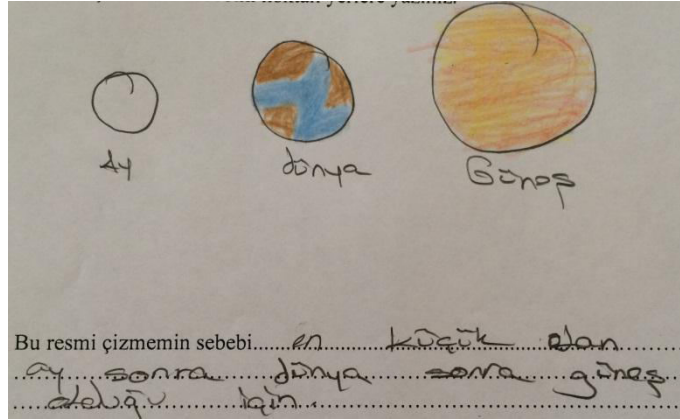 yerlere yazınız.
Ay dünya Güneş
Bu resmi çizmemin sebebi.....en küçük olan
ay sonra dünya sonra güneş
olduğu için.